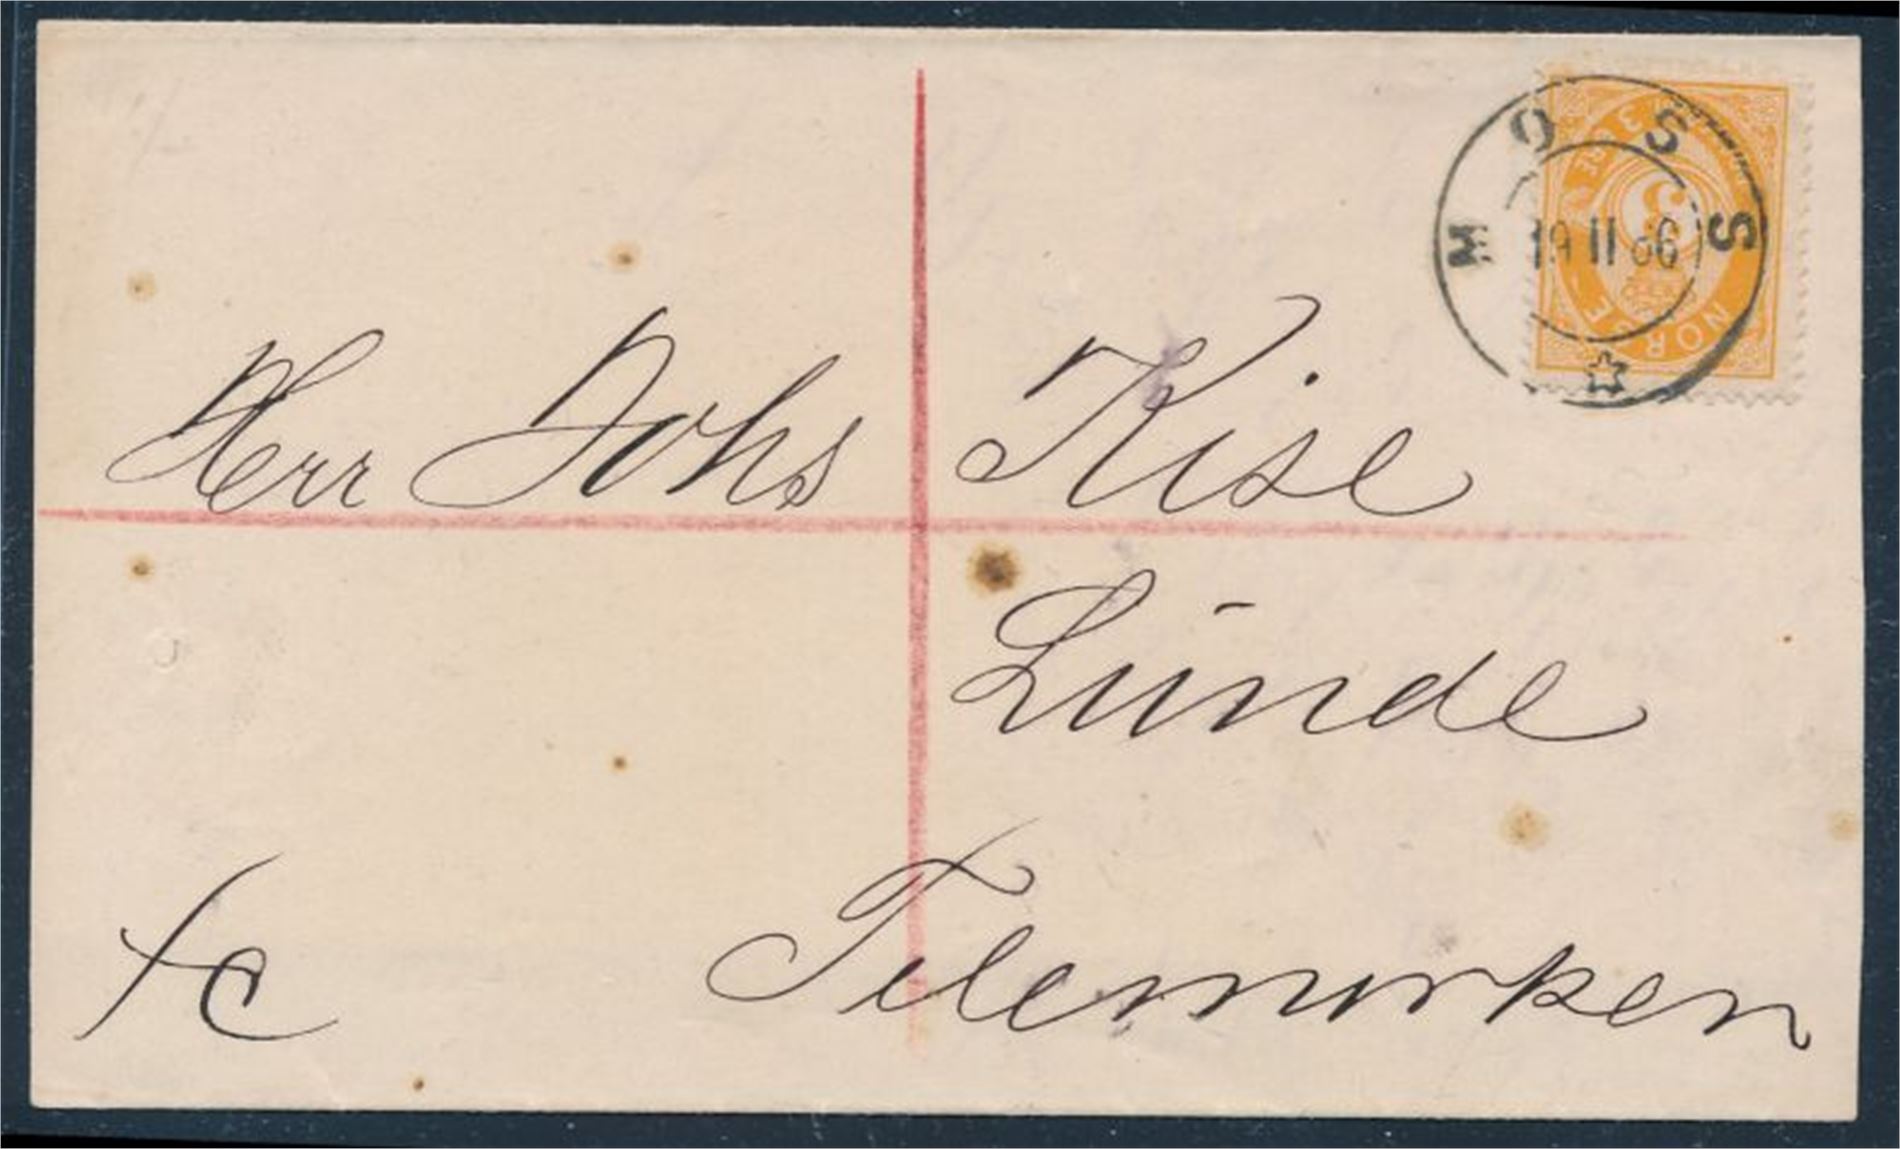 MOSS
19 II 86
3
NORGE
Herr Johs Kise
Lunde
fc Telemarken